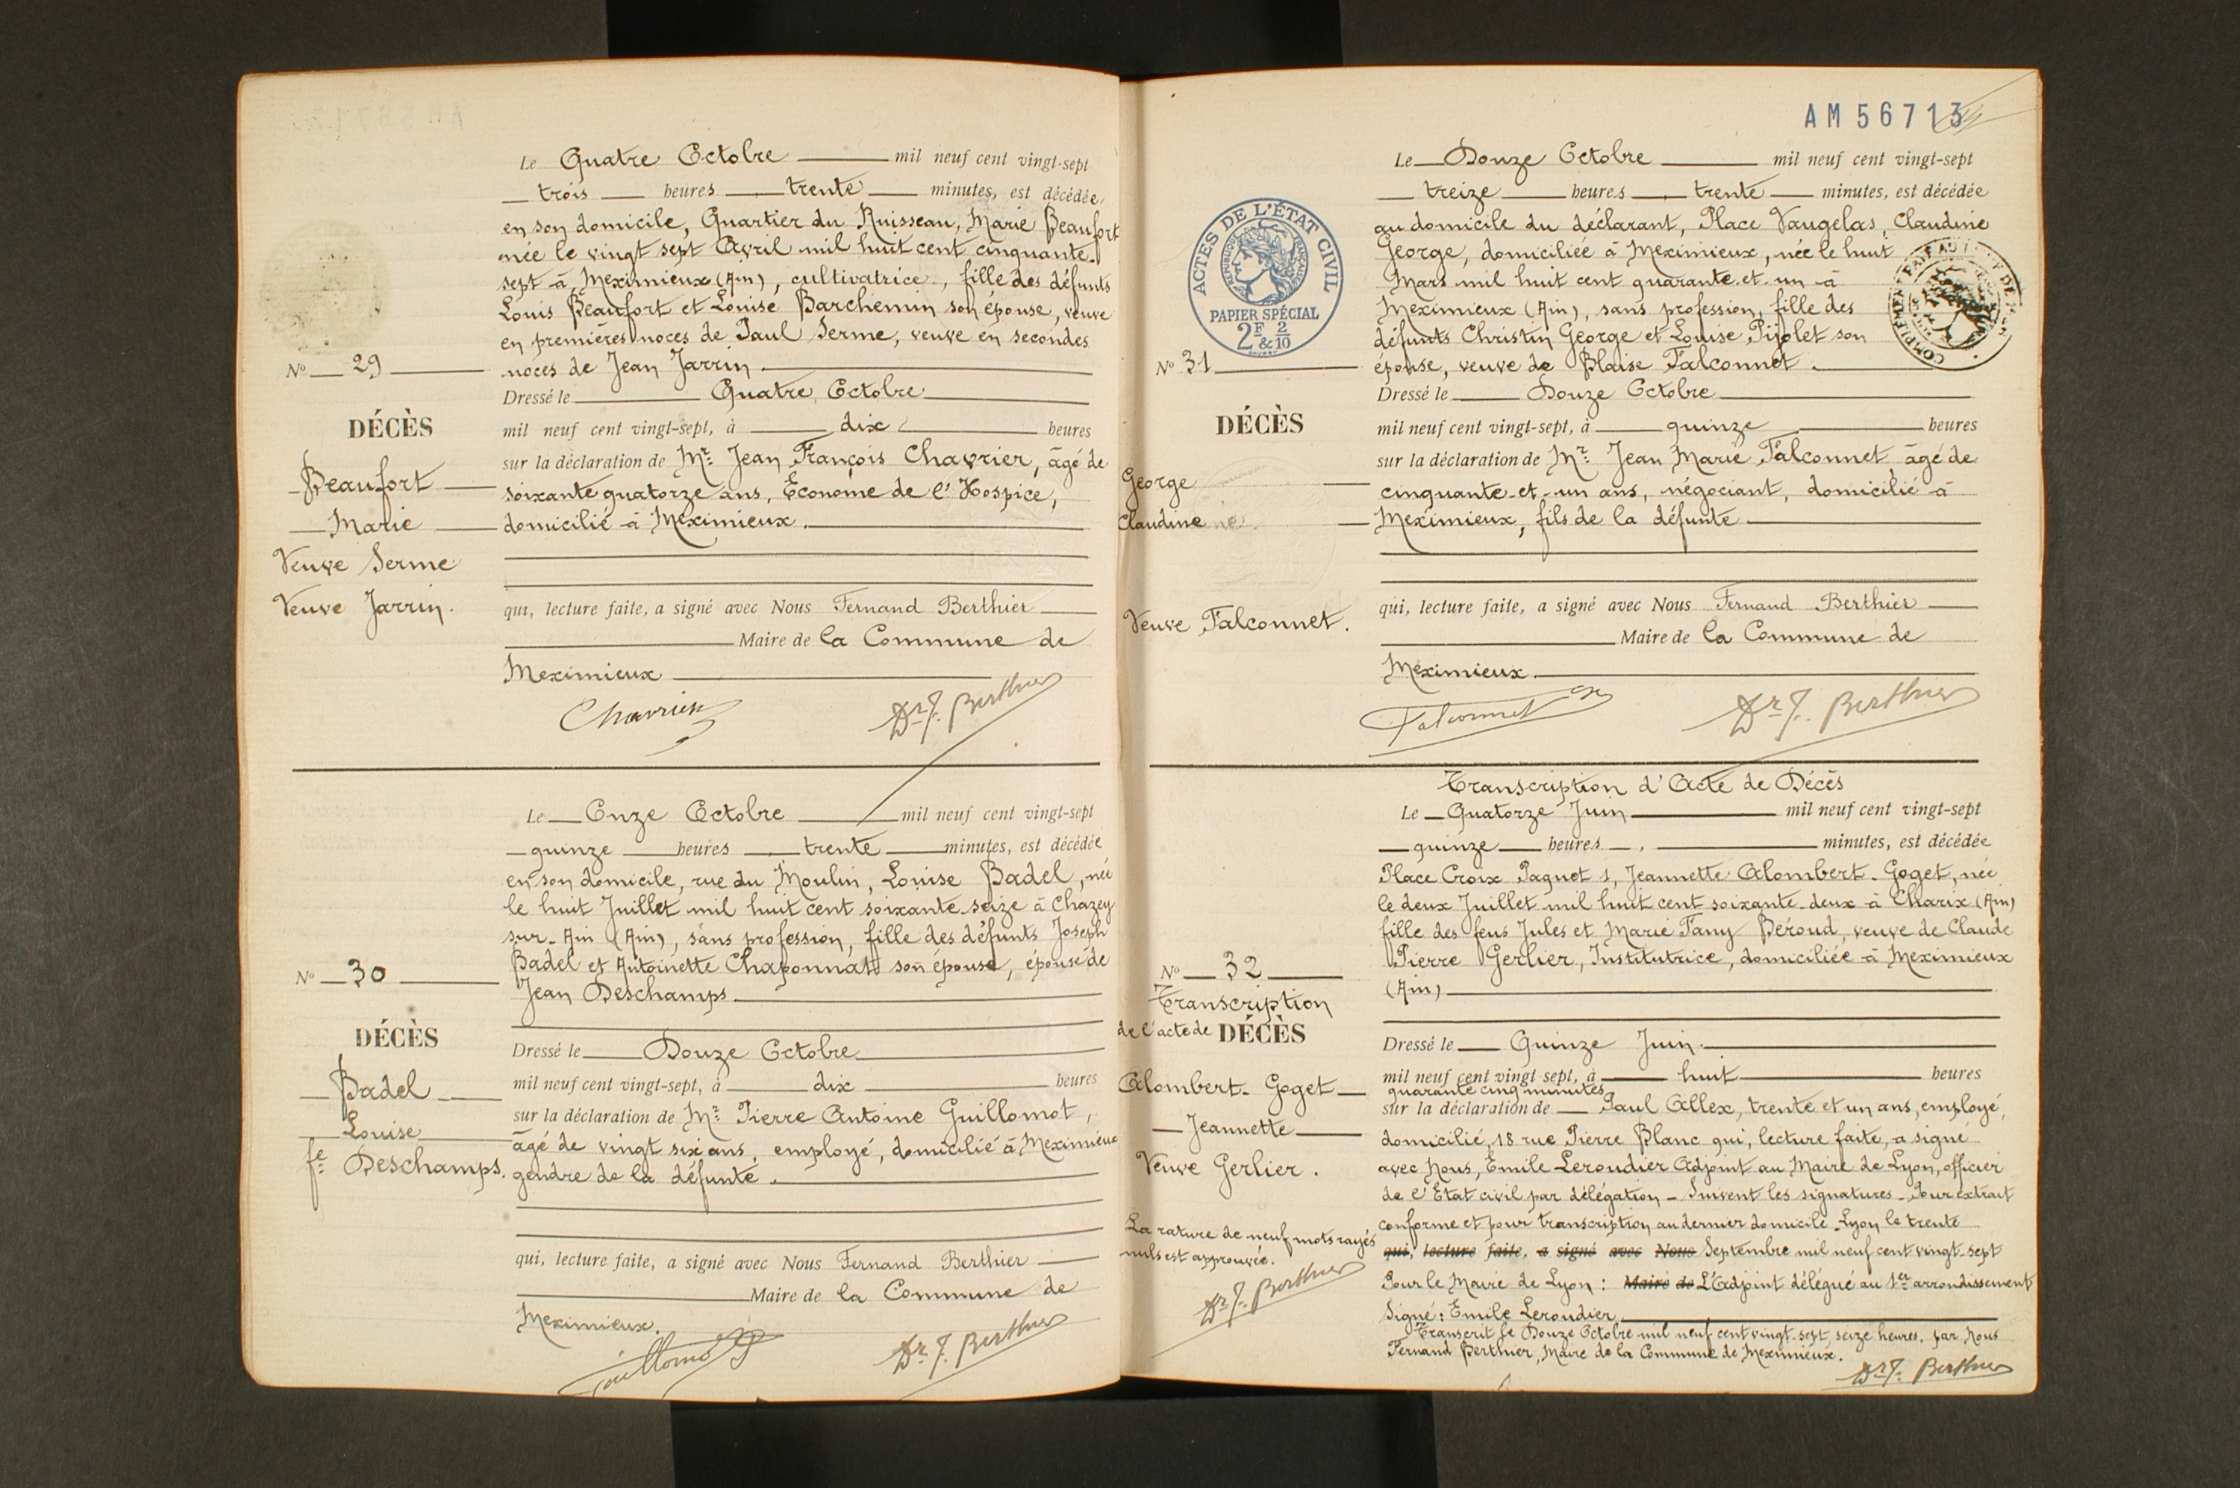 Le Quatre Octobre mil neuf cent vingt-sept
trois heures, trente minutes, est décédée,
en son domicile, Quartier du Ruisseau, Marie Beaufort
née le vingt sept Avril mil huit cent cinquante-
sept à Meximieux (Ain), cultivatrice, fille des défunts
Louis Beaufort et Louise Barchemin son épouse, veuve
en premières noces de Paul Serme, veuve en secondes
noces de Jean Jarrin.
N° 29
Dressé le Quatre Octobre
DÉCÈS
mil neuf cent vingt-sept, à dix heures
sur la déclaration de Mr. Jean François Chavrier, âgé de
Beaufort
soixante quatorze ans, Econome de l'Hospice,
Marie
domicilié à Meximieux.
Veuve Serme
Veuve Jarrin.
qui, lecture faite, a signé avec Nous Fernand Berthier
Maire de la Commune de
Meximieux
Chavrier
Dr. F. Berthier
Le Onze Octobre mil neuf cent vingt-sept
quinze heures, trente minutes, est décédée
en son domicile, rue du Moulin, Louise Badel, née
le huit Juillet mil huit cent soixante-seize à Chazey
sur-Ain (Ain), sans profession, fille des défunts Joseph
Badel et Antoinette Chaponnat son épouse, épouse de
N° 30
Jean Deschamps
DÉCÈS
Dressé le Douze Octobre
Badel
mil neuf cent vingt-sept, à dix heures
sur la déclaration de Mr. Pierre Antoine Guillomot,
Louise
âgé de vingt six ans, employé, domicilié à Meximieux
fe Deschamps.
gendre de la défunte.
qui, lecture faite, a signé avec Nous Fernand Berthier
Maire de la Commune de
Meximieux.
Guillomot
Dr. F. Berthier
AM 56713
Le Douze Octobre mil neuf cent vingt-sept
treize heures, trente minutes, est décédée
au domicile du déclarant, Place Vaugelas, Claudine
George, domiciliée à Meximieux, née le huit
Mars mil huit cent quarante-et-un à
Meximieux (Ain), sans profession, fille des
défunts Christin George et Louise Pijolet son
épouse, veuve de Blaise Falconnet.
ACTES DE L'ÉTAT CIVIL
RÉPUBLIQUE FRANÇAISE
PAPIER SPÉCIAL
2F & 2/10
N° 31
Dressé le Douze Octobre
DÉCÈS
mil neuf cent vingt-sept, à quinze heures
sur la déclaration de Mr. Jean Marie Falconnet âgé de
George
cinquante-et-un ans, négociant, domicilié à
Claudine
Meximieux, fils de la défunte
Veuve Falconnet.
qui, lecture faite, a signé avec Nous Fernand Berthier
Maire de la Commune de
Meximieux
Falconnet
Dr. F. Berthier
Transcription d'Acte de Décès
Le Quatorze Juin mil neuf cent vingt-sept
quinze heures, minutes, est décédée
Place Croix Paquet 1, Jeannette Alombert-Goget, née
le deux Juillet mil huit cent soixante-deux à Charix (Ain)
fille des feus Jules et Marie Fany Béroud, veuve de Claude
Pierre Gerlier, Institutrice, domiciliée à Meximieux
(Ain)
N° 32
Transcription
de l'acte de DÉCÈS
Dressé le Quinze Juin.
mil neuf cent vingt sept, à huit heures
quarante cinq minutes
Alombert-Goget
sur la déclaration de Paul Allex, trente et un ans, employé,
Jeannette
domicilié, 18 rue Pierre Blanc qui, lecture faite, a signé
Veuve Gerlier.
avec Nous, Emile Leroudier Adjoint au Maire de Lyon, officier
de l'Etat civil par délégation - Suivent les signatures - Pour extrait
conforme et pour transcription au dernier domicile. Lyon le trente
qui, lecture faite, a signé avec Nous Septembre mil neuf cent vingt-sept
Pour le Maire de Lyon : Maire de L'Adjoint délégué au 1er arrondissement
Signé : Emile Leroudier
Transcrit le Douze Octobre mil neuf cent vingt-sept, seize heures, par Nous
Fernand Berthier, Maire de la Commune de Meximieux.
Dr. F. Berthier
La rature de neuf mots rayés
nuls est approuvée.
Dr. F. Berthier